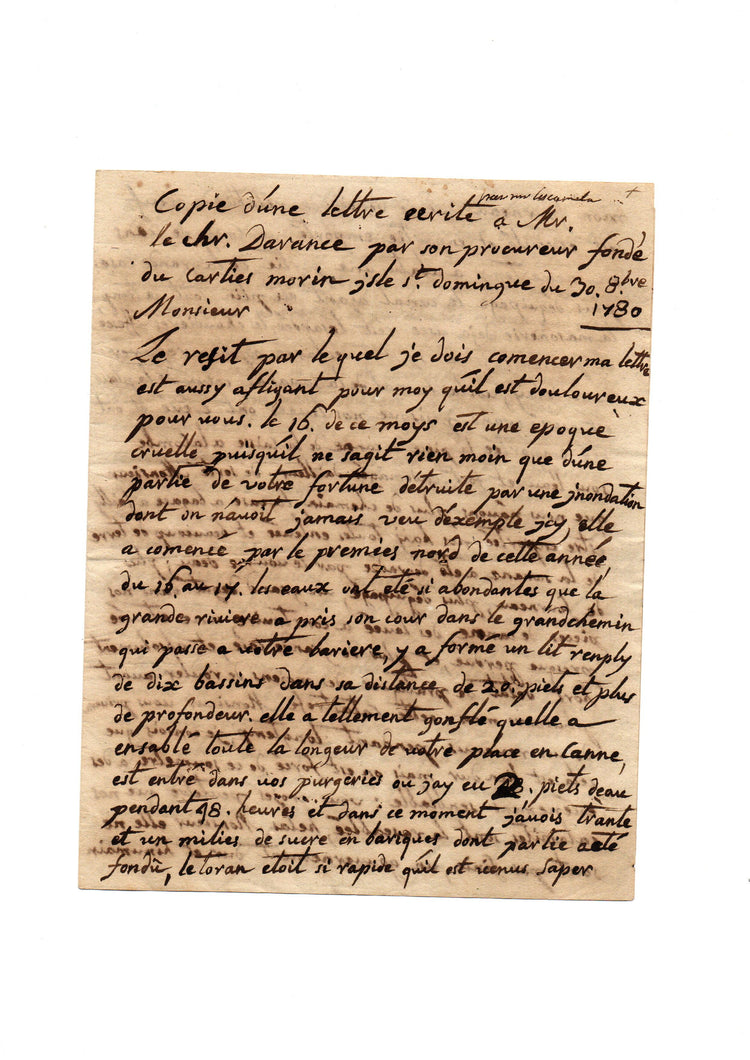 Copie d'une lettre ecrite a Mr.
le chr. Darance par son procureur fondé
du cartier morin jsle st. domingue du 30. 8.bre
1780
Monsieur
Le resit par lequel je dois comencer ma lettre
est aussy afligant pour moy qu'il est douloureux
pour vous. le 16. de ce moys est une epoque
cruelle puisqu'il ne sagit rien moin que d'une
partie de votre fortune détruite par une jnondation
dont on n'avoit jamais veu d'exemple jcy, elle
a comencé par le premier nord de cette année,
du 16. au 17. les eaux ont eté si abondantes que la
grande riviere a pris son cour dans le grand chemin
qui passe a votre bariere, y a formé un lit renply
de dix bassins dans sa distance de 20. piets et plus
de profondeur. elle a tellement gonflé quelle a
ensablé toute la longeur de votre place en Canne,
est entré dans vos purgeries ou j'ay eu piets deau
pendant 48. heures et dans ce moment j'avois trante
et un milier de sucre en bariques dont partie a eté
fondü, le toran etoit si rapide qu'il est venus saper